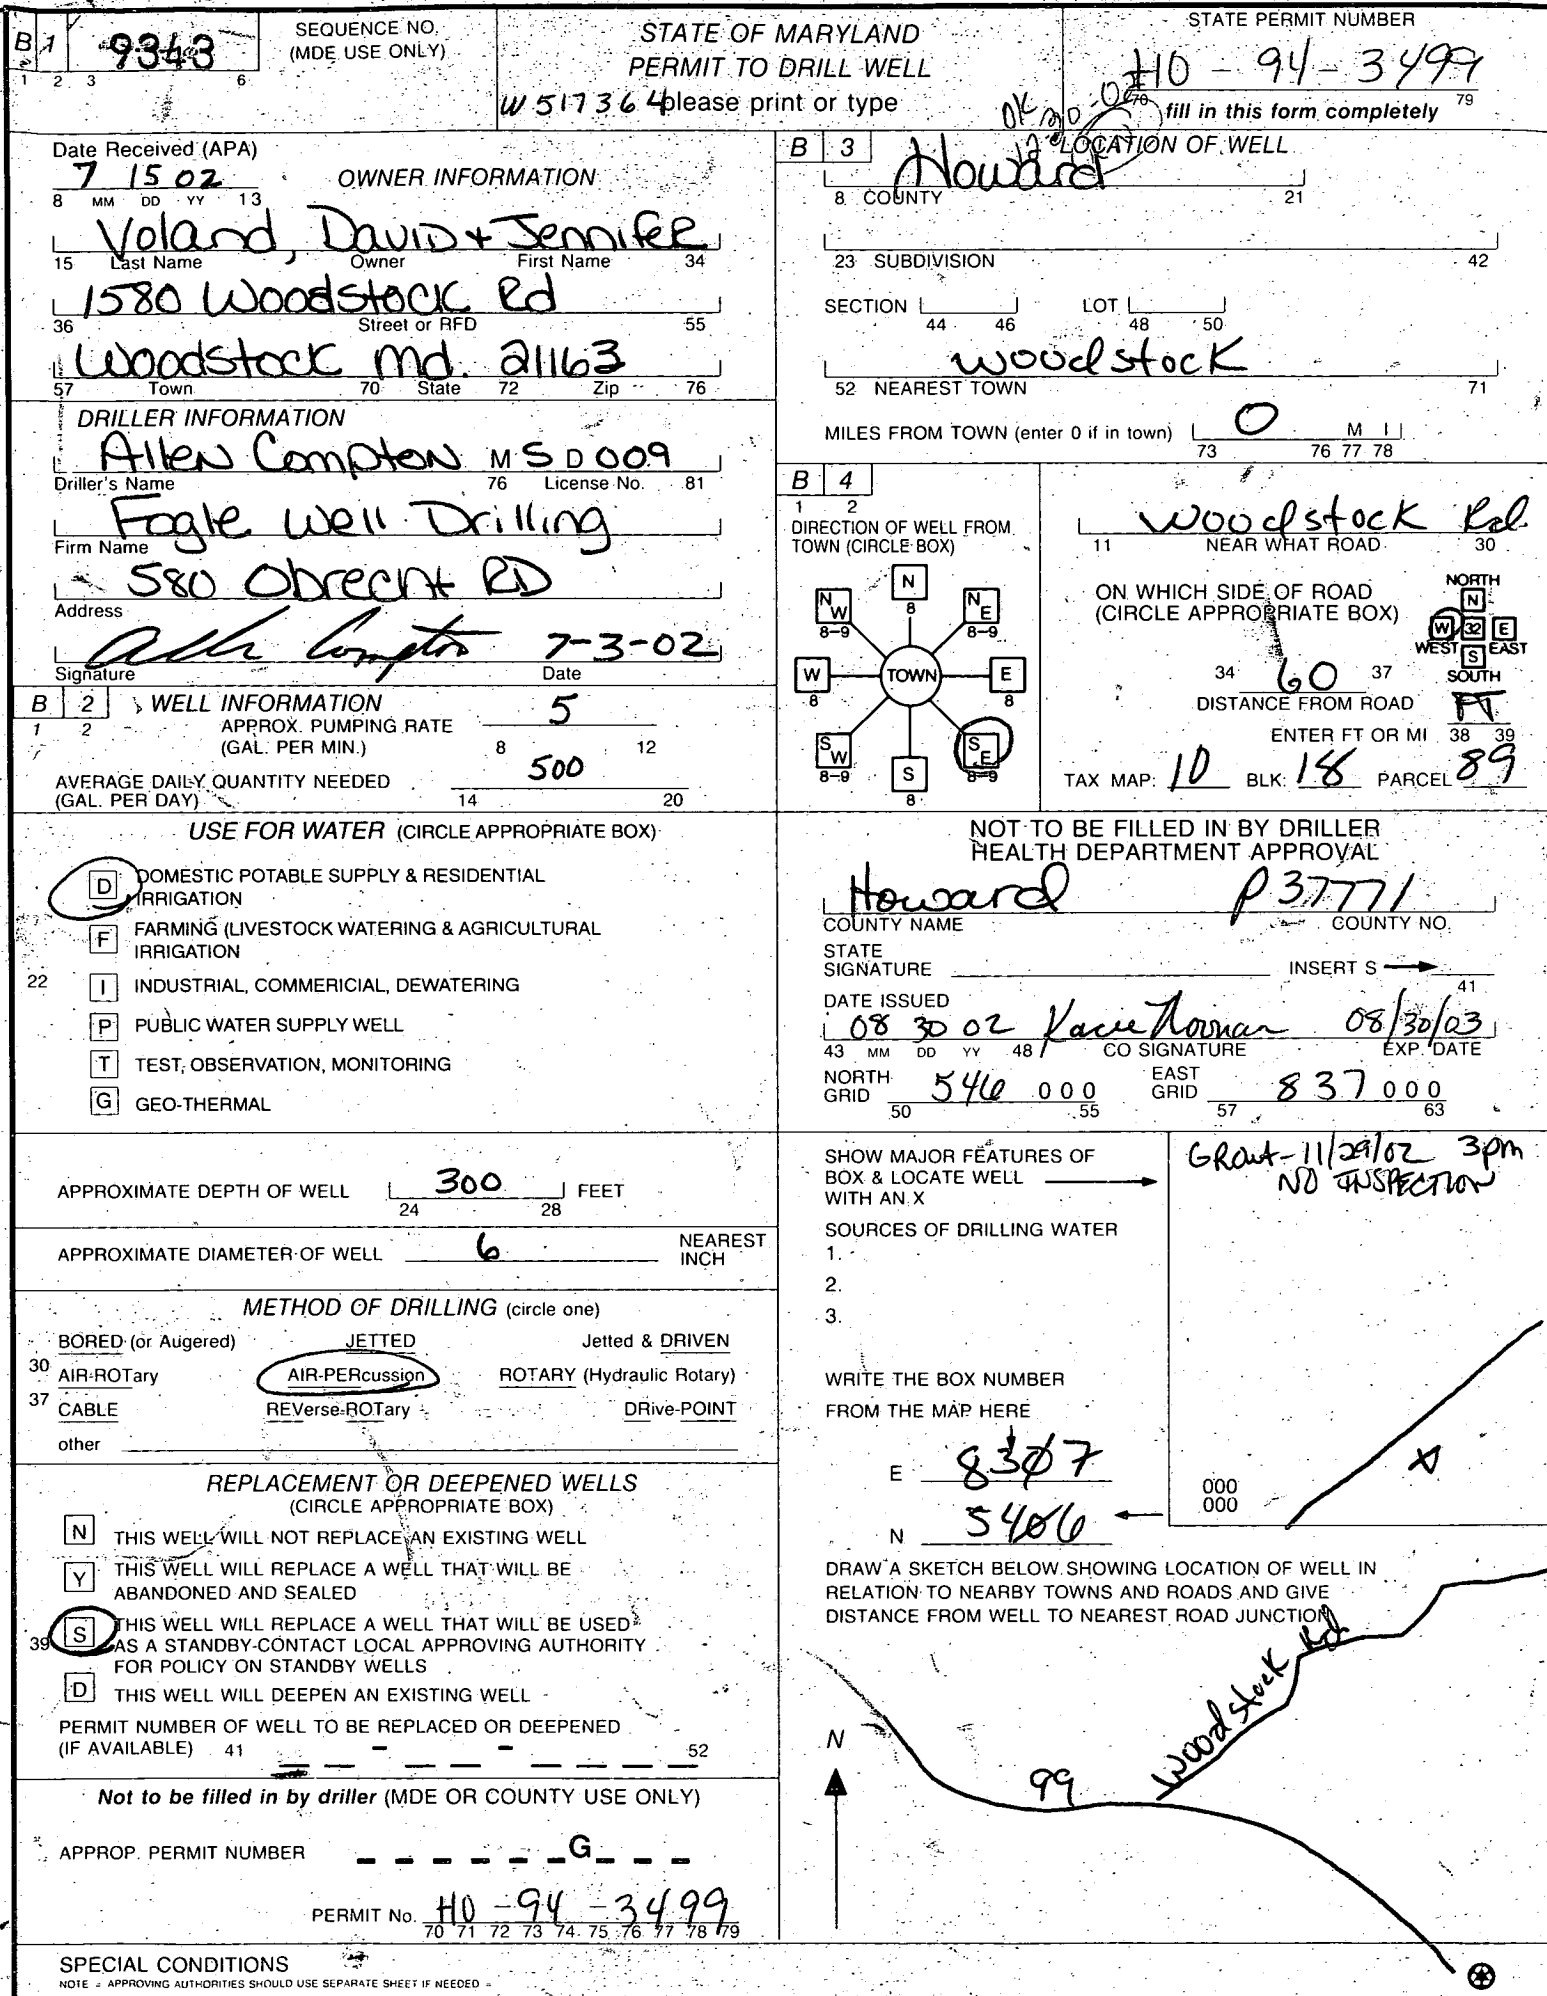 B 1
9343
1 2 3 6
SEQUENCE NO.
(MDE USE ONLY)
STATE OF MARYLAND
PERMIT TO DRILL WELL
W517364 please print or type
STATE PERMIT NUMBER
HO - 94 - 3499
70 79
fill in this form completely
OK
Date Received (APA)
7 15 02
8 MM DD YY 13
OWNER INFORMATION
Voland, David + Jennifer
15 Last Name Owner First Name 34
1580 Woodstock Rd
36 Street or RFD 55
Woodstock Md. 21163
57 Town 70 State 72 Zip 76
DRILLER INFORMATION
Allen Compton M S D 009
Driller's Name 76 License No. 81
Fogle Well Drilling
Firm Name
580 Obrecht RD
Address
Allen Compton 7-3-02
Signature Date
B 2
1 2
WELL INFORMATION
APPROX. PUMPING RATE 5
(GAL. PER MIN.) 8 12
AVERAGE DAILY QUANTITY NEEDED 500
(GAL. PER DAY) 14 20
USE FOR WATER (CIRCLE APPROPRIATE BOX)
D DOMESTIC POTABLE SUPPLY & RESIDENTIAL
IRRIGATION
F FARMING (LIVESTOCK WATERING & AGRICULTURAL
IRRIGATION
22 I INDUSTRIAL, COMMERICIAL, DEWATERING
P PUBLIC WATER SUPPLY WELL
T TEST, OBSERVATION, MONITORING
G GEO-THERMAL
APPROXIMATE DEPTH OF WELL 300 FEET
24 28
APPROXIMATE DIAMETER OF WELL 6 NEAREST
INCH
METHOD OF DRILLING (circle one)
BORED (or Augered) JETTED Jetted & DRIVEN
30 AIR-ROTary AIR-PERcussion ROTARY (Hydraulic Rotary)
37 CABLE REVerse-ROTary DRive-POINT
other
REPLACEMENT OR DEEPENED WELLS
(CIRCLE APPROPRIATE BOX)
N THIS WELL WILL NOT REPLACE AN EXISTING WELL
Y THIS WELL WILL REPLACE A WELL THAT WILL BE
ABANDONED AND SEALED
S THIS WELL WILL REPLACE A WELL THAT WILL BE USED
39 AS A STANDBY-CONTACT LOCAL APPROVING AUTHORITY
FOR POLICY ON STANDBY WELLS
D THIS WELL WILL DEEPEN AN EXISTING WELL
PERMIT NUMBER OF WELL TO BE REPLACED OR DEEPENED
(IF AVAILABLE) 41 - - 52
Not to be filled in by driller (MDE OR COUNTY USE ONLY)
APPROP. PERMIT NUMBER G
PERMIT No. HO - 94 - 3499
70 71 72 73 74 75 76 77 78 79
SPECIAL CONDITIONS
NOTE = APPROVING AUTHORITIES SHOULD USE SEPARATE SHEET IF NEEDED =
B 3
LOCATION OF WELL
Howard
8 COUNTY 21
23 SUBDIVISION 42
SECTION LOT
44 46 48 50
Woodstock
52 NEAREST TOWN 71
MILES FROM TOWN (enter 0 if in town) 0 M I
73 76 77 78
B 4
1 2
DIRECTION OF WELL FROM
TOWN (CIRCLE BOX)
N
8
NW
8-9
NE
8-9
W
8
TOWN
E
8
SW
8-9
SE
8-9
S
8
Woodstock Rd
11 NEAR WHAT ROAD 30
ON WHICH SIDE OF ROAD
(CIRCLE APPROPRIATE BOX)
NORTH
N
W 32 E
WEST EAST
S
SOUTH
34 60 37
DISTANCE FROM ROAD FT
ENTER FT OR MI 38 39
TAX MAP: 10 BLK: 18 PARCEL 89
NOT TO BE FILLED IN BY DRILLER
HEALTH DEPARTMENT APPROVAL
Howard P37771
COUNTY NAME COUNTY NO.
STATE
SIGNATURE INSERT S
41
DATE ISSUED
08 30 02 08/30/03
43 MM DD YY 48 CO SIGNATURE EXP. DATE
NORTH
GRID 546 000
50 55
EAST
GRID 837 000
57 63
SHOW MAJOR FEATURES OF
BOX & LOCATE WELL
WITH AN X
SOURCES OF DRILLING WATER
1.
2.
3.
GROUT - 11/29/02 3pm
NO INSPECTION
WRITE THE BOX NUMBER
FROM THE MAP HERE
E 8307
N 5406
000
000
X
DRAW A SKETCH BELOW SHOWING LOCATION OF WELL IN
RELATION TO NEARBY TOWNS AND ROADS AND GIVE
DISTANCE FROM WELL TO NEAREST ROAD JUNCTION
Woodstock Rd
N
99